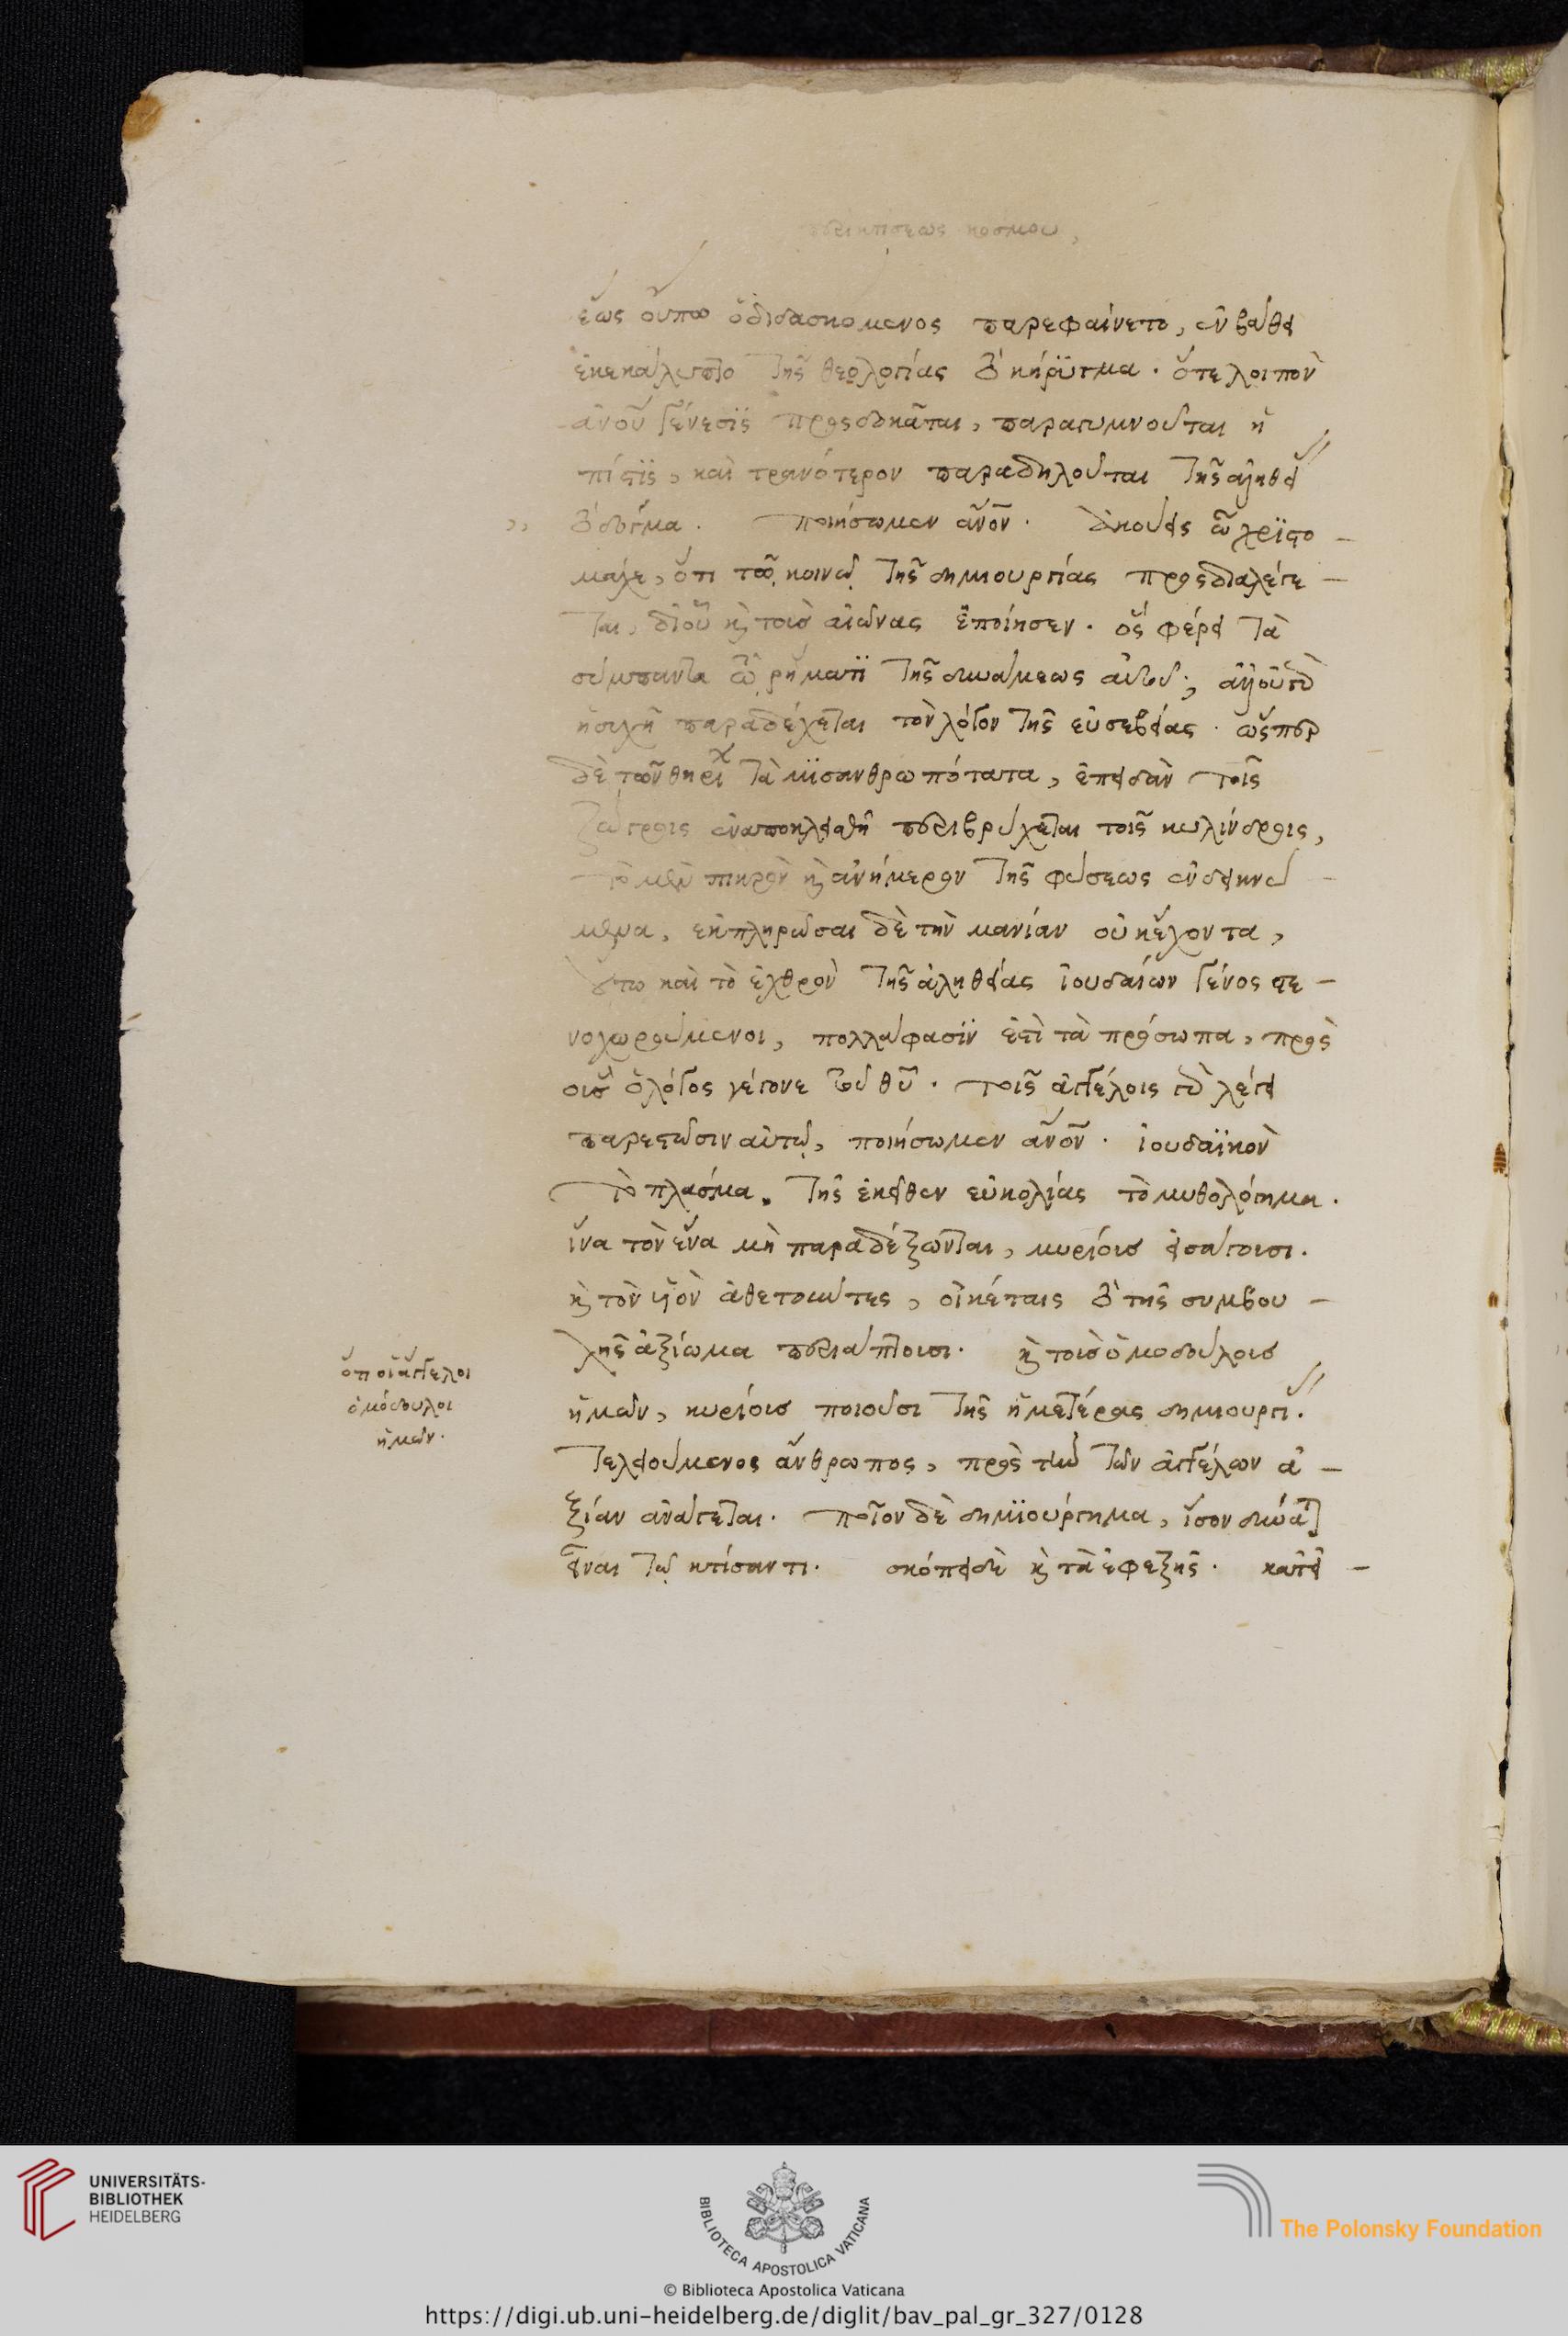 περὶ κτίσεως κόσμου,
ἕως οὔπω ὁ διδασκόμενος παρεφαίνετο, ἐν βάθει
ἐκεκάλυπτο τῆς θεολογίας τὸ κήρυγμα. ὅτε λοιπὸν
ἀνου γένεσις προσδοκᾶται, παραγυμνοῦται ἡ
πίστις, καὶ τρανότερον παραδηλοῦται τῆς ἀληθεί
τὸ δόγμα. ποιήσωμεν ἄνον. ἀκούεις ὦ χριστο
μάχε, ὅτι τῶ κοινωνῶ τῆς δημιουργίας προσδιαλέγε
ται, δι' οὗ κ τοὺς αἰῶνας ἐποίησεν. ὃς φέρει τὰ
σύμπαντα τῶ ῥήματι τῆς δυνάμεως αὐτοῦ; ἀλλ' οὐ γὰρ
ἡσυχῆ παραδέχεται τὸν λόγον τῆς εὐσεβείας. ὥσπερ
δὲ τῶν θηρί τὰ μισανθρωπότατα, ἐπειδὰν τοῖς
ζώγροις ἐναποκλεισθῆ περιβρύχεται τοῖς κυλίνδροις,
τὸ μὲν πικρὸν κ ἀνήμερον τῆς φύσεως ἐνδεικνύ
μενα, ἐκπληρῶσαι δὲ τὴν μανίαν οὐκ ἔχοντα,
οὕτω καὶ τὸ ἐχθρὸν τῆς ἀληθείας ἰουδαίων γένος στε
νοχωρούμενοι, πολλά φασιν ἐστὶ τὰ πρόσωπα, πρὸς
οὓς ὁ λόγος γέγονε τοῦ θυ. τοῖς ἀγγέλοις γὰρ λέγει
παρεστῶσιν αὐτῶ, ποιήσωμεν ἄνον. ἰουδαϊκὸν
τὸ πλάσμα. τῆς ἐκεῖθεν εὐκολίας τὸ μυθολόγημα.
ἵνα τὸν ἕνα μὴ παραδέξωνται, μυρίους εἰσάγουσι.
κ τὸν υἱὸν ἀθετοῦντες, οἰκέταις τὸ τῆς συμβου
λῆς ἀξίωμα περιάπτουσι. κ τοὺς ὁμοδούλους
ἡμῶν, κυρίους ποιοῦσι τῆς ἡμετέρας δημιουργί.
τελειούμενος ἄνθρωπος, πρὸς τὴν τῶν ἀγγέλων ἀ
ξίαν ἀνάγεται. ποῖον δὲ δημιούργημα, ἴσον δύναται
εἶναι τῶ κτίσαντι. σκόπει δὲ κ τὰ ἐφεξῆς. κατ' εἰ
ὅτι οἱ ἄγγελοι
ὁμόδουλοι
ἡμῶν.
UNIVERSITÄTS-
BIBLIOTHEK
HEIDELBERG
BIBLIOTECA APOSTOLICA VATICANA
The Polonsky Foundation
© Biblioteca Apostolica Vaticana
https://digi.ub.uni-heidelberg.de/diglit/bav_pal_gr_327/0128